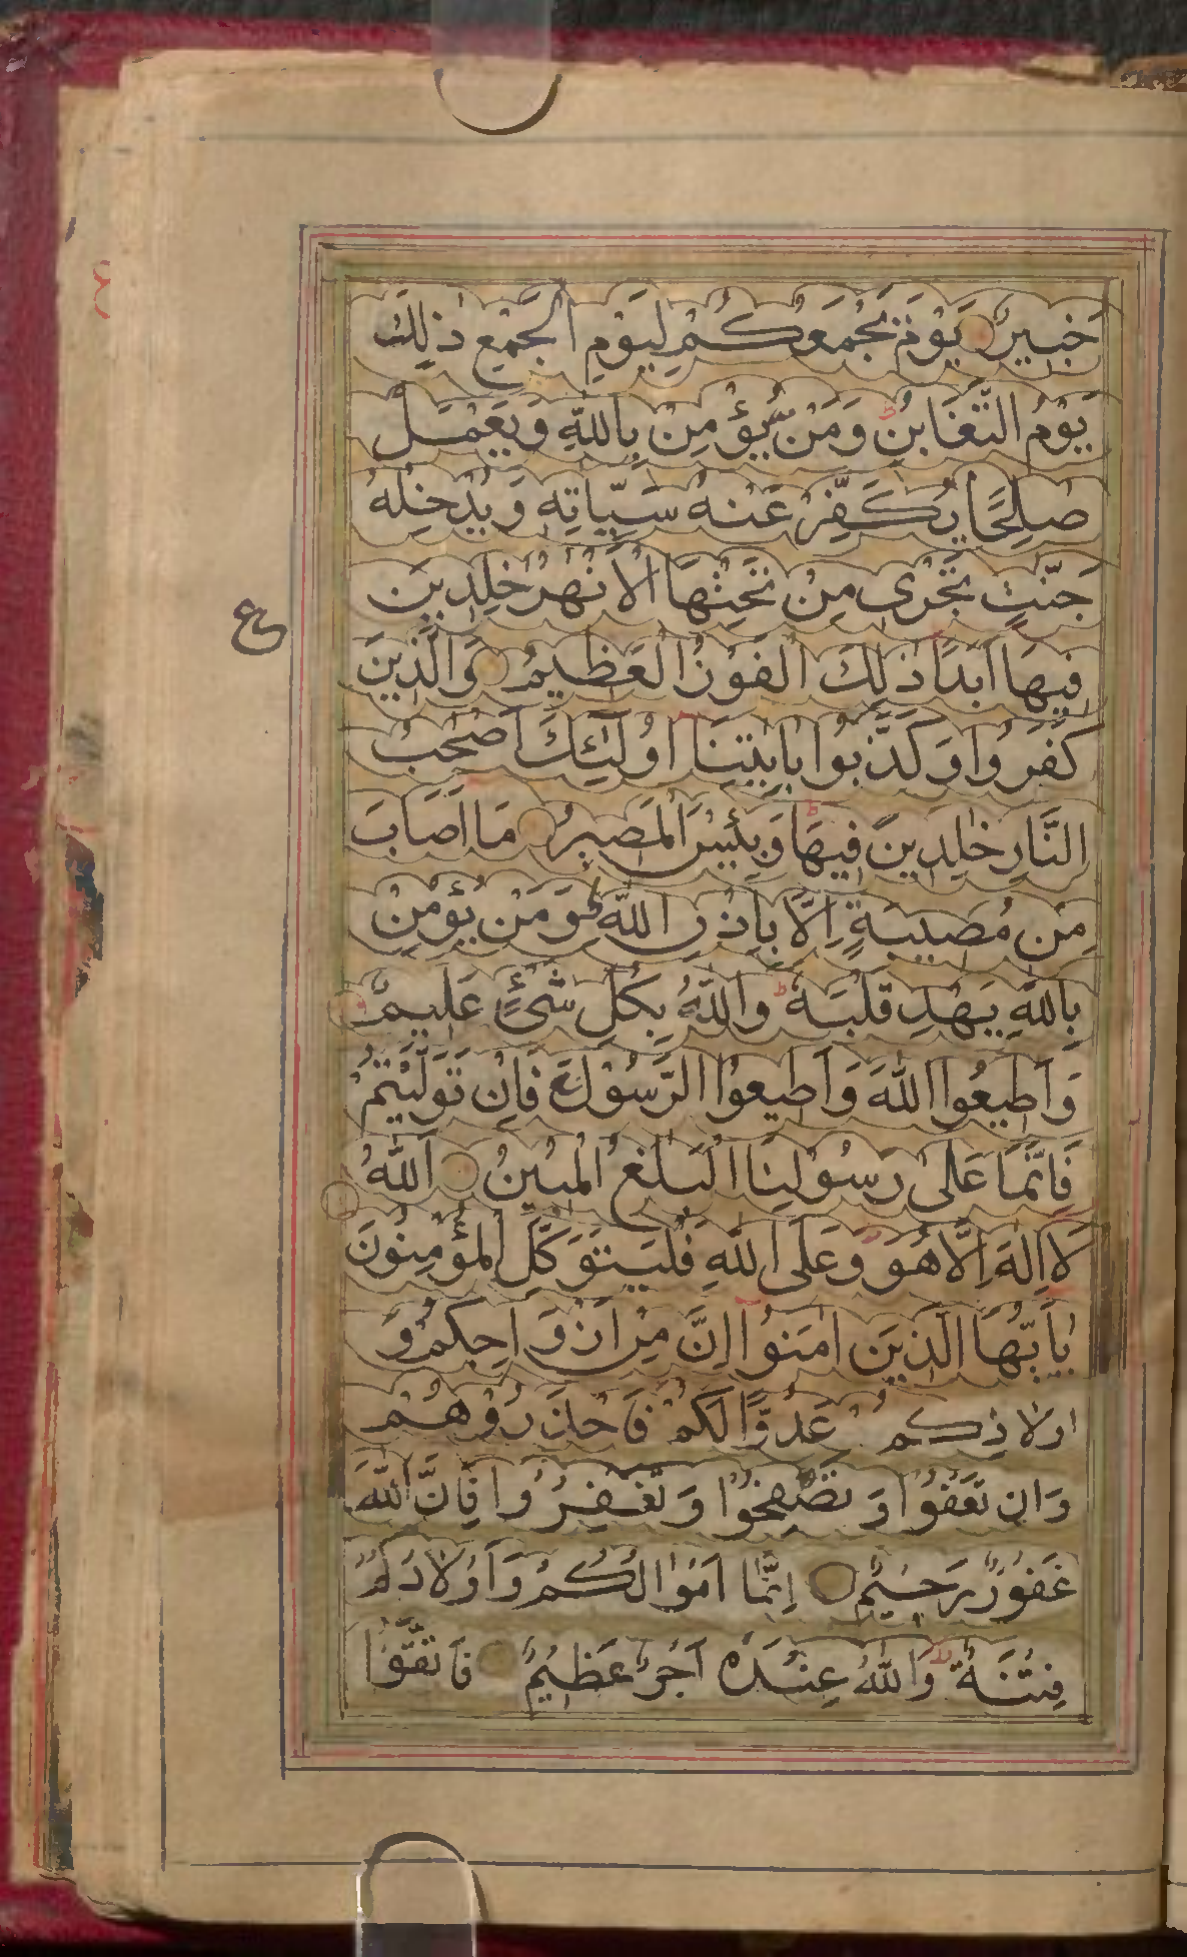 خَبِيرٌ يَوْمَ يَجْمَعُكُمْ لِيَوْمِ الْجَمْعِ ذٰلِكَ
يَوْمُ التَّغَابُنِ ط وَمَنْ يُّؤْمِنْ بِاللّٰهِ وَيَعْمَلْ
صٰلِحًا يُّكَفِّرْ عَنْهُ سَيِّاٰتِهٖ وَيُدْخِلْهُ
جَنّٰتٍ تَجْرِىْ مِنْ تَحْتِهَا الْاَنْهٰرُ خٰلِدِيْنَ
فِيْهَا اَبَدًا ذٰلِكَ الْفَوْزُ الْعَظِيْمُ وَالَّذِيْنَ
ع
كَفَرُوْا وَكَذَّبُوْا بِاٰيٰتِنَا اُولٰٓئِكَ اَصْحٰبُ
النَّارِ خٰلِدِيْنَ فِيْهَا ط وَبِئْسَ الْمَصِيْرُ مَا اَصَابَ
مِنْ مُّصِيْبَةٍ اِلَّا بِاِذْنِ اللّٰهِ ط وَمَنْ يُّؤْمِنْ
بِاللّٰهِ يَهْدِ قَلْبَهٗ ط وَاللّٰهُ بِكُلِّ شَىْءٍ عَلِيْمٌ
وَاَطِيْعُوا اللّٰهَ وَاَطِيْعُوا الرَّسُوْلَ ج فَاِنْ تَوَلَّيْتُمْ
فَاِنَّمَا عَلٰى رَسُوْلِنَا الْبَلٰغُ الْمُبِيْنُ اَللّٰهُ
لَا اِلٰهَ اِلَّا هُوَ وَعَلَى اللّٰهِ فَلْيَتَوَكَّلِ الْمُؤْمِنُوْنَ
يٰاَيُّهَا الَّذِيْنَ اٰمَنُوْا اِنَّ مِنْ اَزْوَاجِكُمْ وَ
اَوْلَادِكُمْ عَدُوًّا لَّكُمْ فَاحْذَرُوْهُمْ
وَاِنْ تَعْفُوْا وَتَصْفَحُوْا وَتَغْفِرُوْا فَاِنَّ اللّٰهَ
غَفُوْرٌ رَّحِيْمٌ اِنَّمَا اَمْوَالُكُمْ وَاَوْلَادُكُمْ
فِتْنَةٌ ط وَاللّٰهُ عِنْدَهٗ اَجْرٌ عَظِيْمٌ فَاتَّقُوا